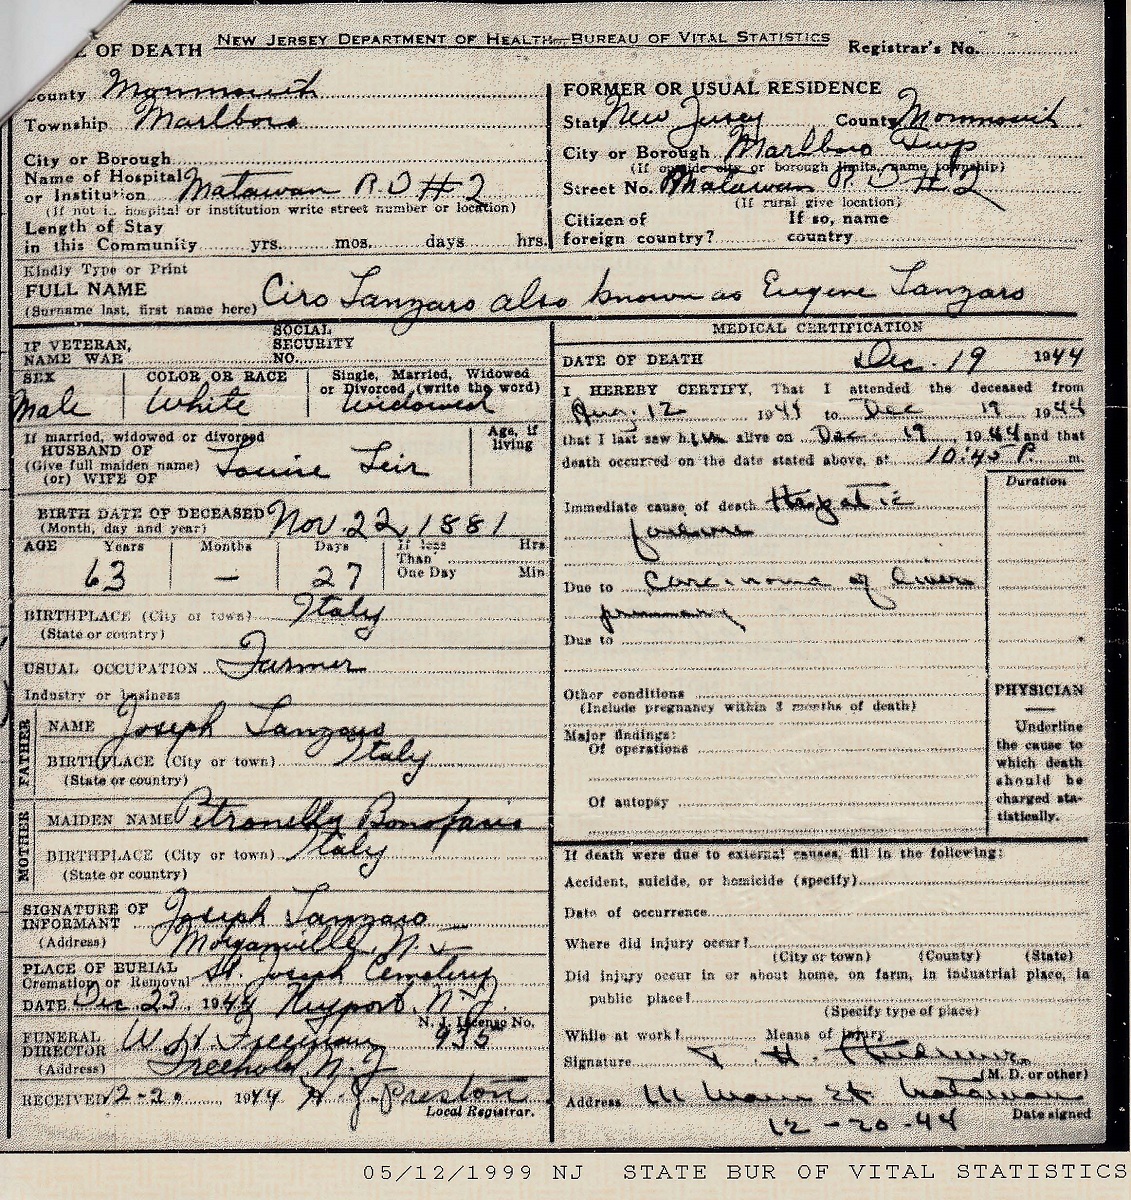 E OF DEATH NEW JERSEY DEPARTMENT OF HEALTH—BUREAU OF VITAL STATISTICS Registrar's No.
County Monmouth
Township Marlboro
City or Borough
Name of Hospital
or Institution Matawan R.D #2
(If not in hospital or institution write street number or location)
Length of Stay
in this Community yrs. mos. days hrs.
FORMER OR USUAL RESIDENCE
State New Jersey County Monmouth
City or Borough Marlboro Twp
(If outside city or borough limits, name township)
Street No. Matawan R D #2
(If rural give location)
Citizen of If so, name
foreign country? country
Kindly Type or Print
FULL NAME Ciro Lanzaro also known as Eugene Lanzaro
(Surname last, first name here)
IF VETERAN, SOCIAL SECURITY
NAME WAR NO.
SEX COLOR OR RACE Single, Married, Widowed
or Divorced (write the word)
Male White Widowed
If married, widowed or divorced Age, if
HUSBAND OF living
(Give full maiden name) Louise
(or) WIFE OF
BIRTH DATE OF DECEASED Nov. 22, 1881
(Month, day and year)
AGE Years Months Days If less Hrs
Than
One Day Min
63 — 27
BIRTHPLACE (City or town) Italy
(State or country)
USUAL OCCUPATION Farmer
Industry or business
FATHER
NAME Joseph Lanzaro
BIRTHPLACE (City or town) Italy
(State or country)
MOTHER
MAIDEN NAME Petronella
BIRTHPLACE (City or town) Italy
(State or country)
SIGNATURE OF
INFORMANT Joseph Lanzaro
(Address) Morganville, N.J
PLACE OF BURIAL
Cremation or Removal St. Joseph Cemetery
DATE Dec 23, 1944 Keyport, N.J.
N. J. License No.
FUNERAL W. H. Freeman 935
DIRECTOR
(Address) Freehold, N.J
RECEIVED 12-20, 1944 H. J. Preston
Local Registrar.
MEDICAL CERTIFICATION
DATE OF DEATH Dec. 19 1944
I HEREBY CERTIFY, That I attended the deceased from
Aug. 12 to Dec 19 1944
that I last saw him alive on Dec. 19, 1944 and that
death occurred on the date stated above, at 10:45 P. m.
Duration
Immediate cause of death Hepatic
failure
Due to Carcinoma of liver
primary
Due to
Other conditions
(Include pregnancy within 3 months of death)
Major findings:
Of operations
Of autopsy
PHYSICIAN
Underline
the cause to
which death
should be
charged sta-
tistically.
If death were due to external causes, fill in the following:
Accident, suicide, or homicide (specify)
Date of occurrence
Where did injury occur?
(City or town) (County) (State)
Did injury occur in or about home, on farm, in industrial place, in
public place?
(Specify type of place)
While at work? Means of injury
Signature H.
(M. D. or other)
Address Main St Matawan
Date signed
12-20-44
05/12/1999 NJ STATE BUR OF VITAL STATISTICS